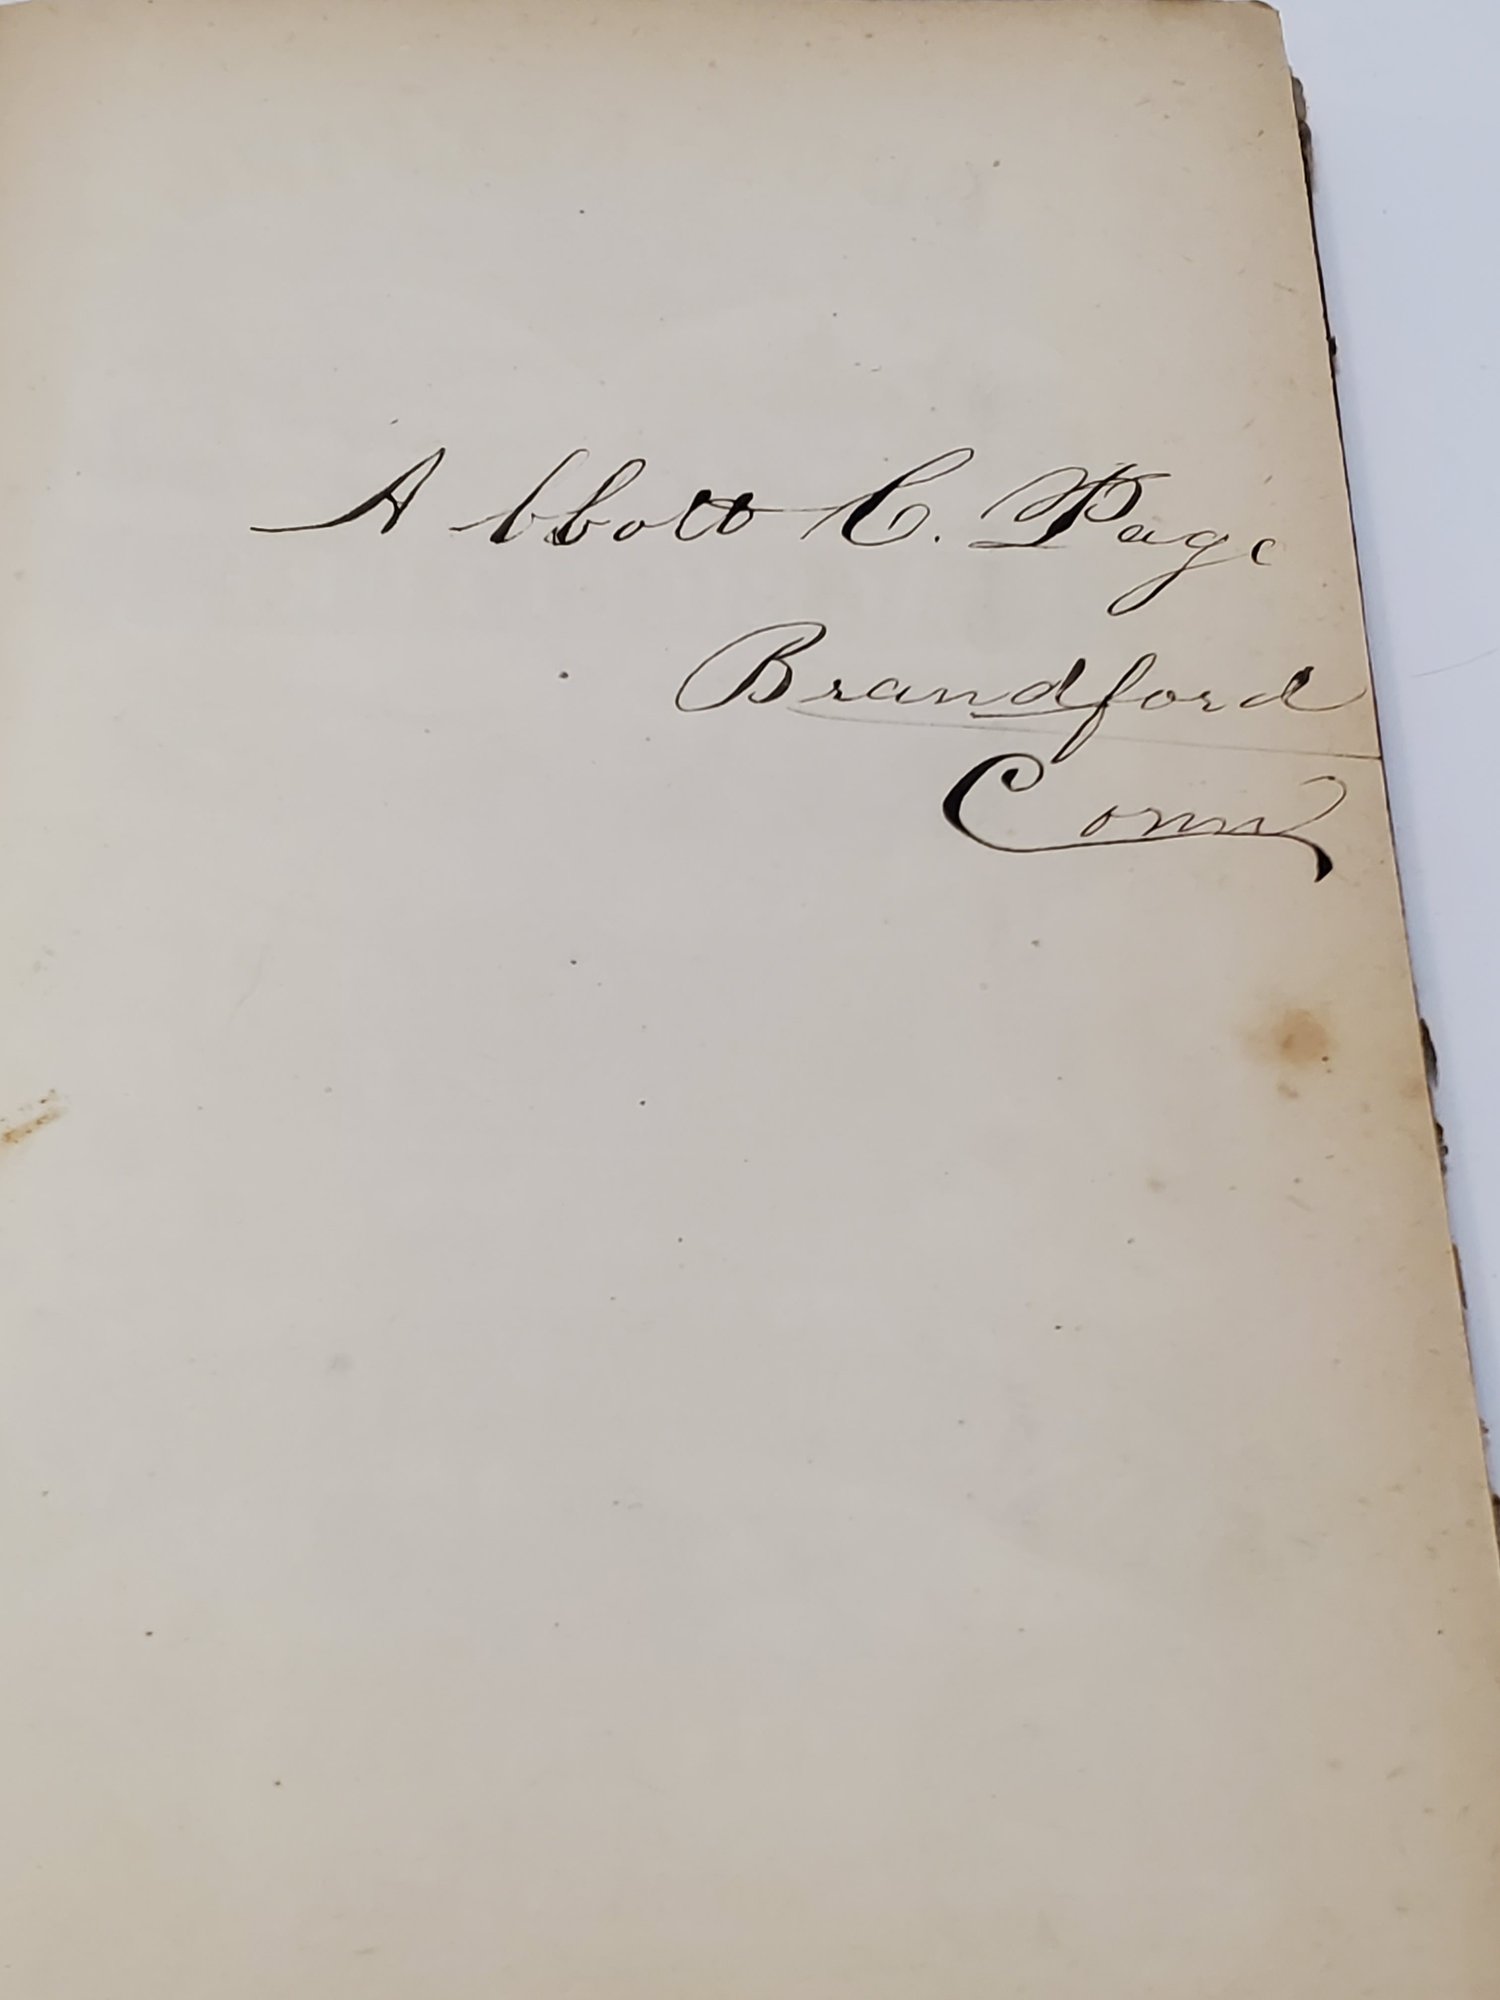 Abbott C. Page
Brandford
Conn